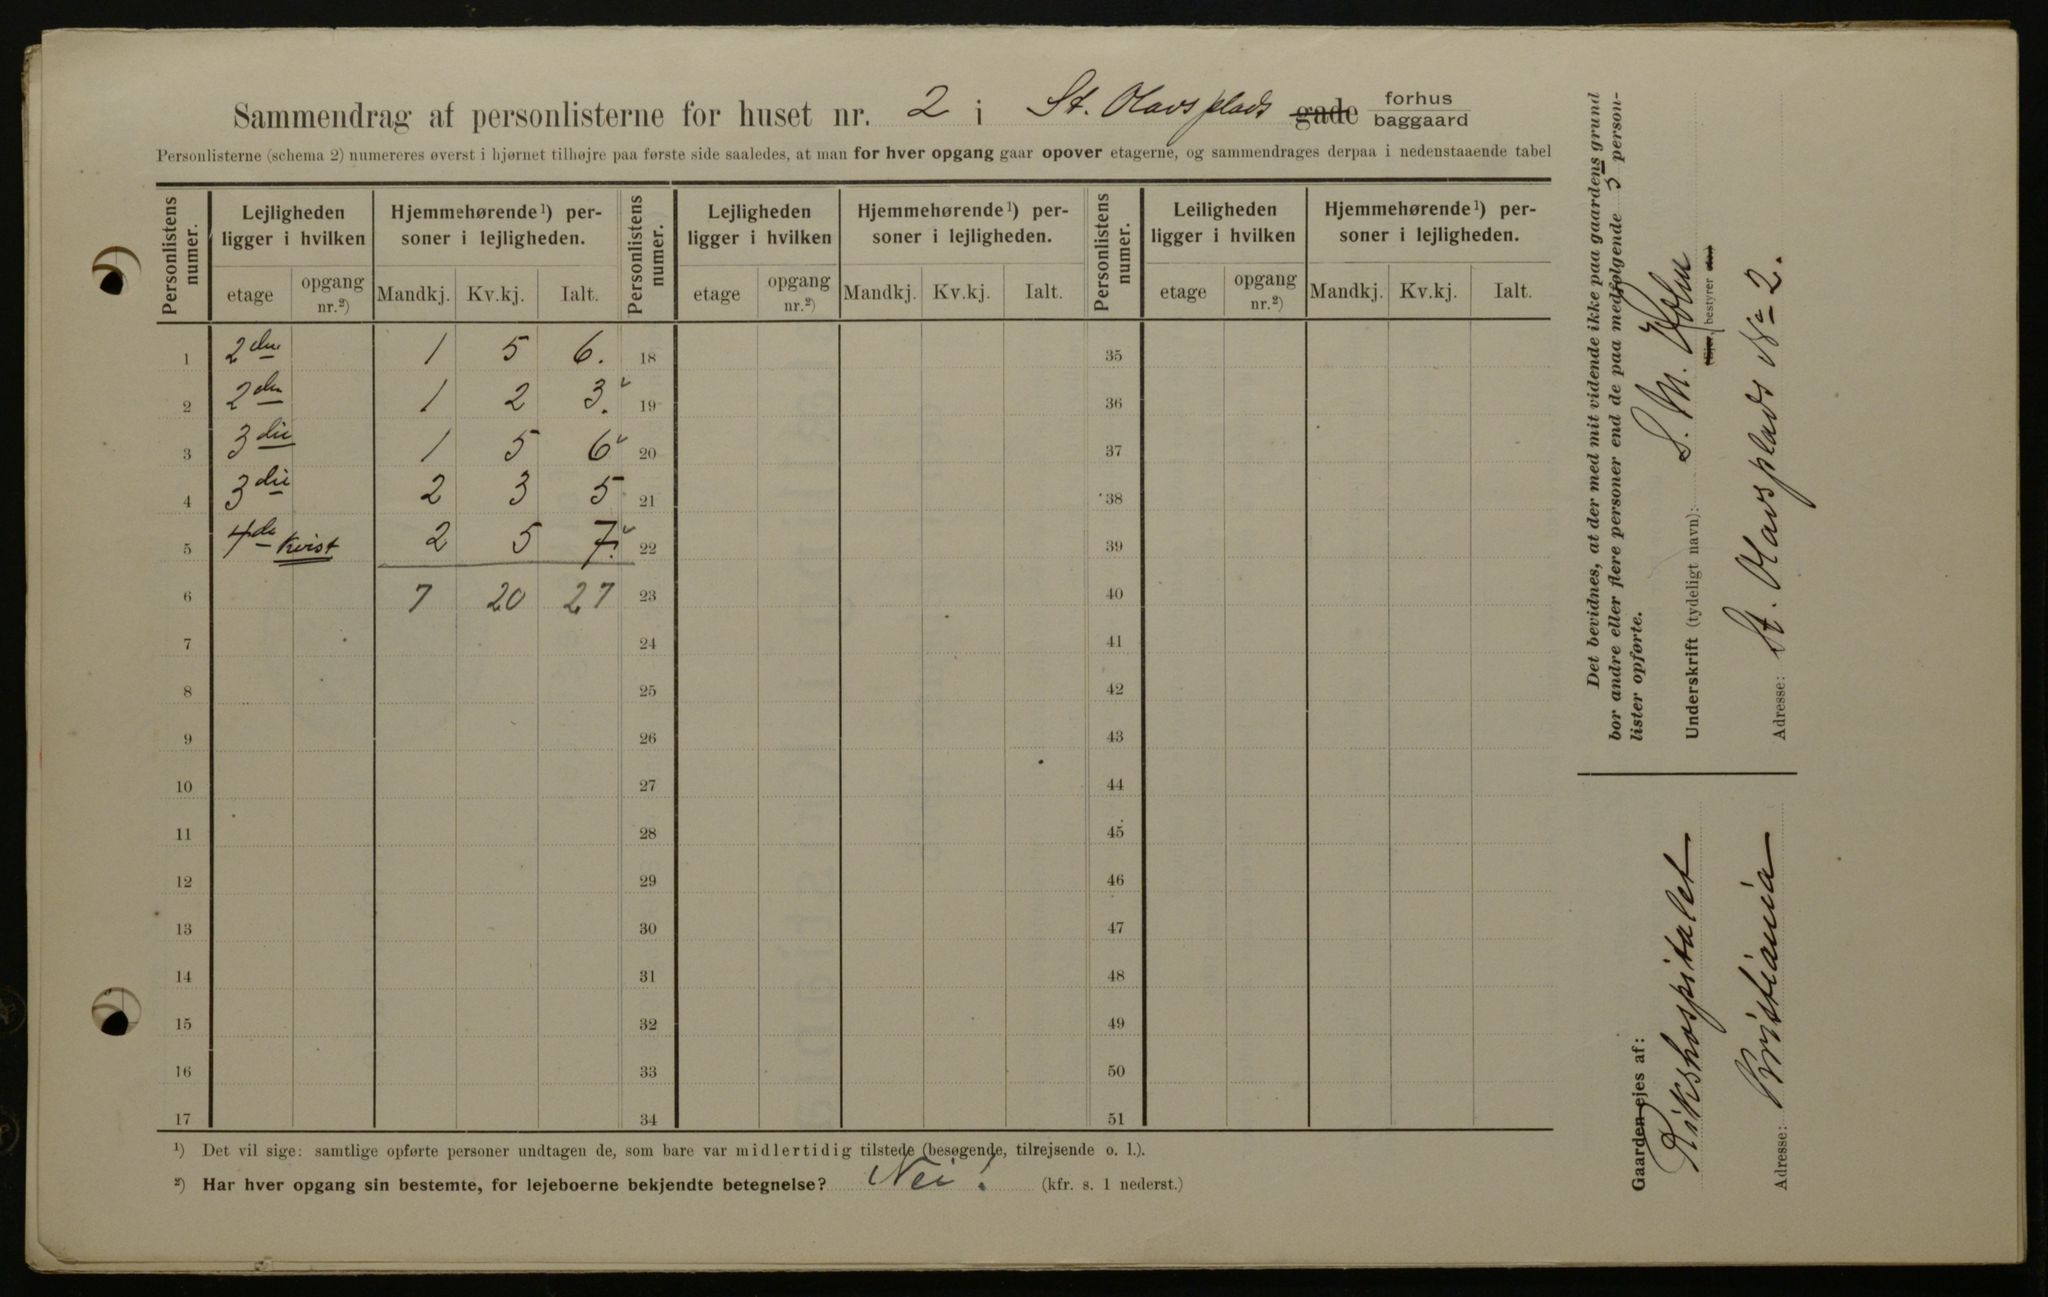 Sammendrag af personlisterne for huset nr. 2 i St. Olavs plads gade forhus baggaard
Personlisterne (schema 2) numereres øverst i hjørnet tilhøjre paa første side saaledes, at man for hver opgang gaar opover etagerne, og sammendrages derpaa i nedenstaaende tabel
Personlistens numer. Lejligheden ligger i hvilken Hjemmehørende¹) personer i lejligheden. Personlistens numer. Lejligheden ligger i hvilken Hjemmehørende¹) personer i lejligheden. Personlistens numer. Leiligheden ligger i hvilken Hjemmehørende¹) personer i lejligheden.
etage opgang nr.²) Mandkj. Kv.kj. Ialt. etage opgang nr.²) Mandkj. Kv.kj. Ialt. etage opgang nr.²) Mandkj. Kv.kj. Ialt.
1 2den 1 5 6. 18 35
2 2den 1 2 3. 19 36
3 3die 1 5 6 20 37
4 3die 2 3 5 21 38
5 4de Kvist 2 5 7. 22 39
6 7 20 27 23 40
7 24 41
8 25 42
9 26 43
10 27 44
11 28 45
12 29 46
13 30 47
14 31 48
15 32 49
16 33 50
17 34 51
¹) Det vil sige: samtlige opførte personer undtagen de, som bare var midlertidig tilstede (besøgende, tilrejsende o. l.).
²) Har hver opgang sin bestemte, for lejeboerne bekjendte betegnelse? Nei! (kfr. s. 1 nederst.)
Det bevidnes, at der med mit vidende ikke paa gaardens grund
bor andre eller flere personer end de paa medfølgende 5 person-
lister opførte.
Underskrift (tydeligt navn): S. M. Holm
(Ejer, bestyrer
Adresse: St. Olavsplads No 2.
Gaarden ejes af: Rikshospitalet
Adresse: Kristiania